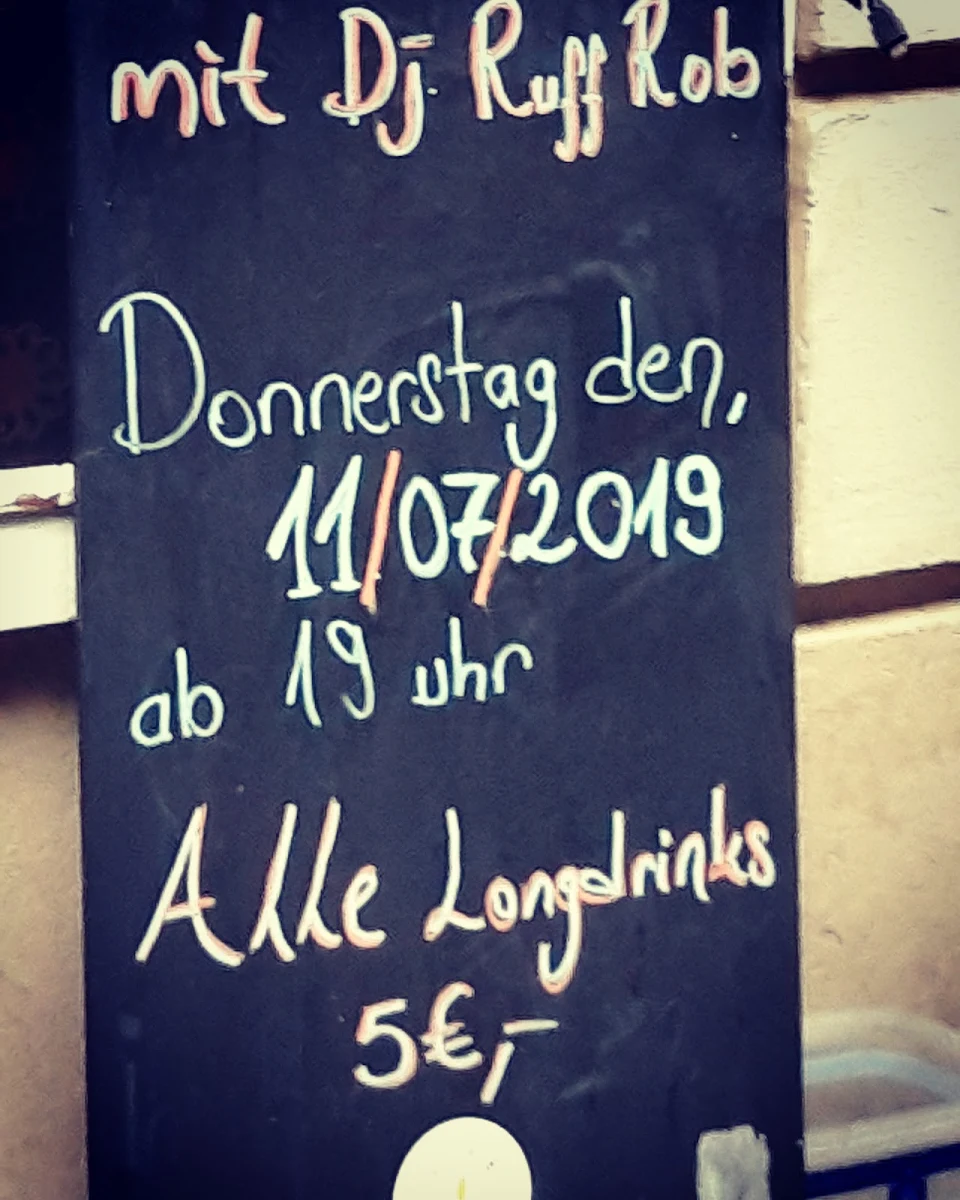 mit Dj Ruff Rob
Donnerstag den,
11/07/2019
ab 19 uhr
Alle Longdrinks
5€,-